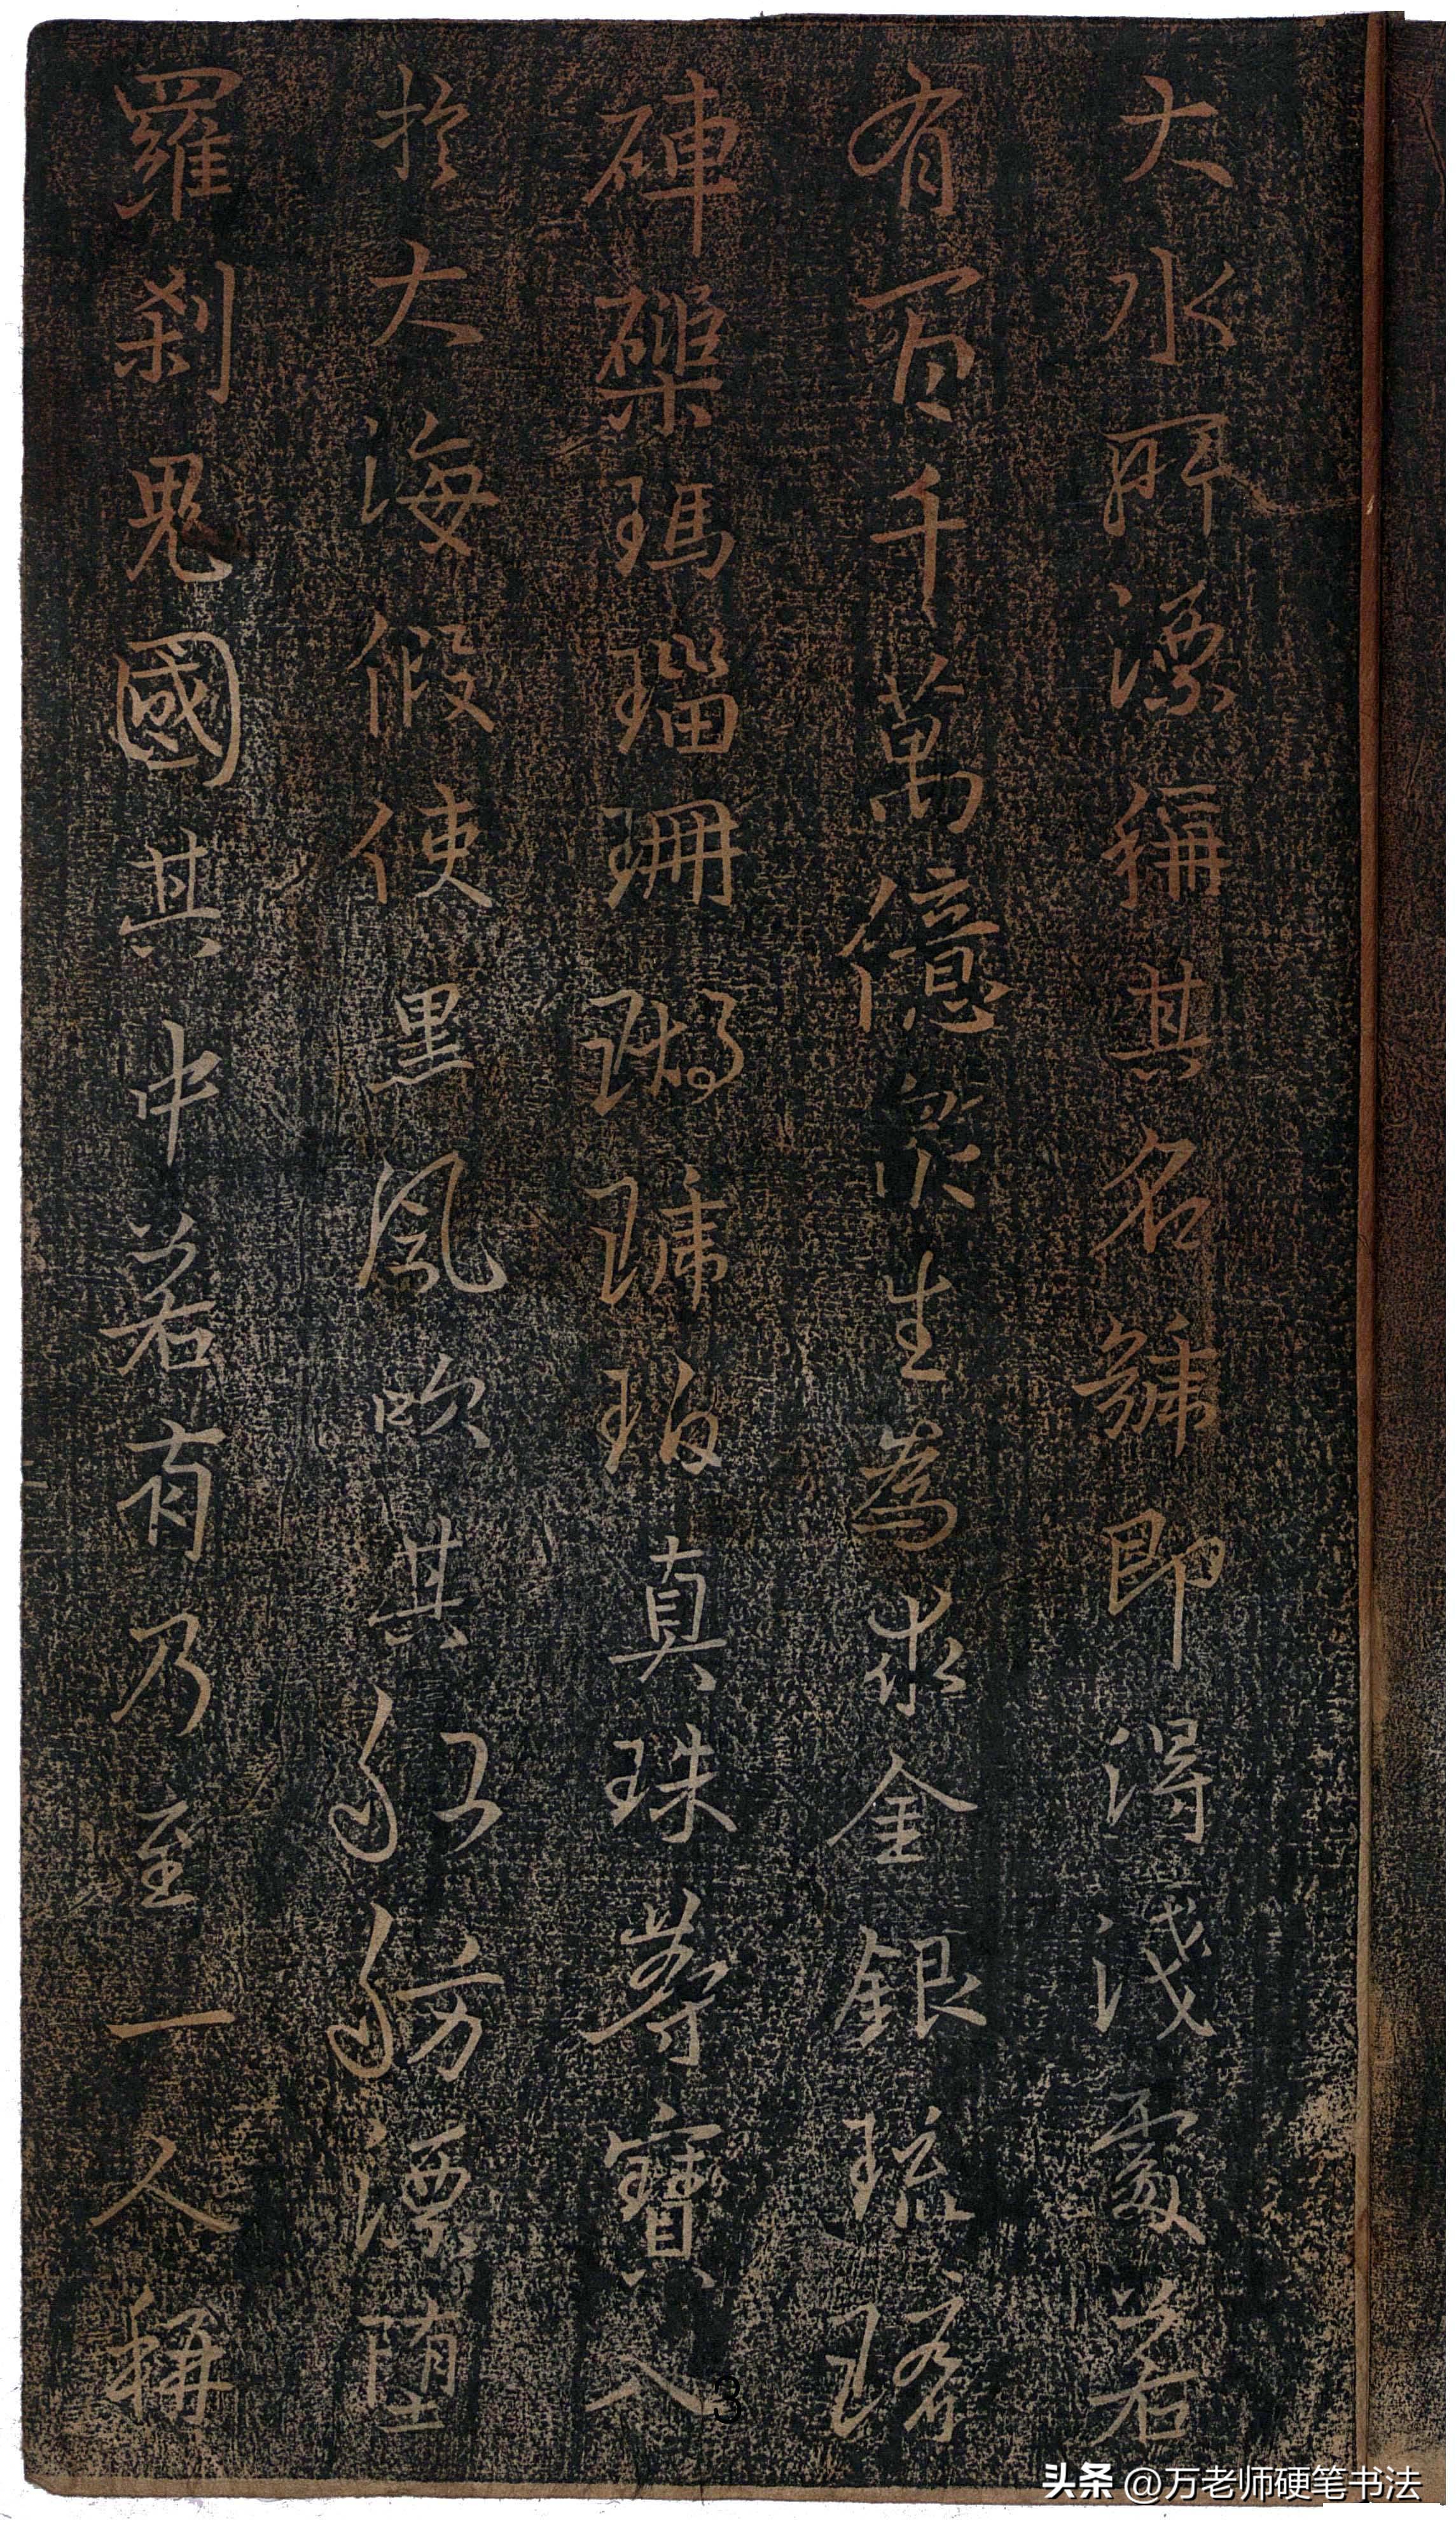 大水所漂稱其名號即得淺處若
有百千萬億衆生為求金銀琉璃
硨磲瑪瑙珊瑚琥珀真珠等寶入
於大海假使黑風吹其船舫漂堕
羅剎鬼國其中若有乃至一人稱
3
头条 @万老师硬笔书法